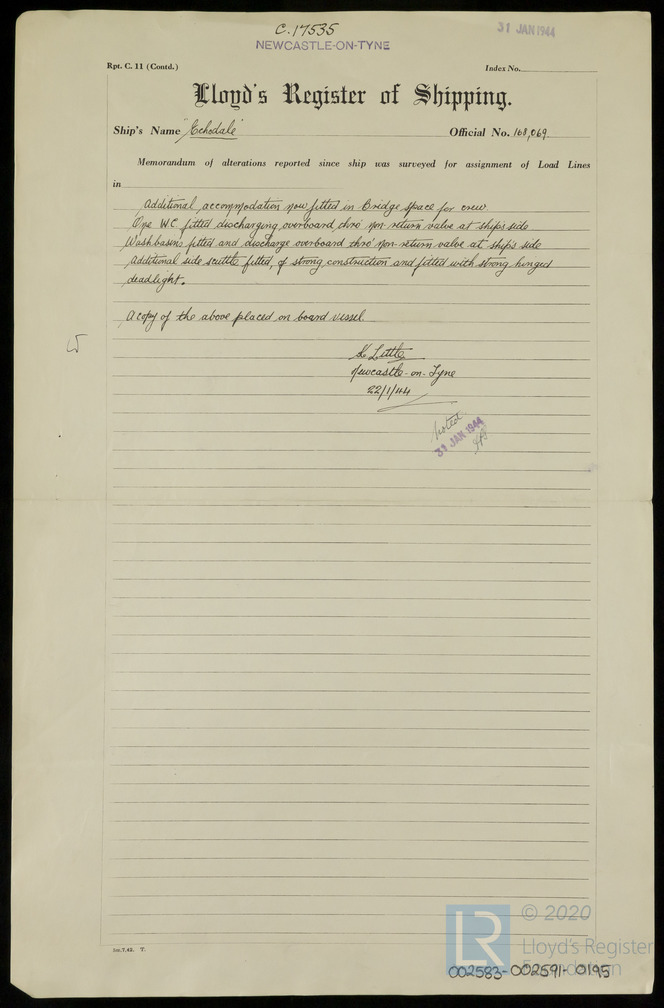 C.17535
31 JAN 1944
NEWCASTLE-ON-TYNE
Rpt. C. 11 (Contd.)
Index No.
Lloyd's Register of Shipping.
Ship's Name "Echodale"
Official No. 168,069
Memorandum of alterations reported since ship was surveyed for assignment of Load Lines
in
Additional accommodation now fitted in Bridge space for crew
One WC fitted discharging overboard thro' non-return valve at ship's side
Washbasins fitted and discharge overboard thro' non-return valve at ship's side
Additional side scuttle fitted, of strong construction and fitted with strong hinged
deadlight.
A copy of the above placed on board vessel
K Little
Newcastle-on-Tyne
22/1/44
Noted
31 JAN 1944
7.43. T.
LR
© 2020
Lloyd's Register
Foundation
002583-002591-0195